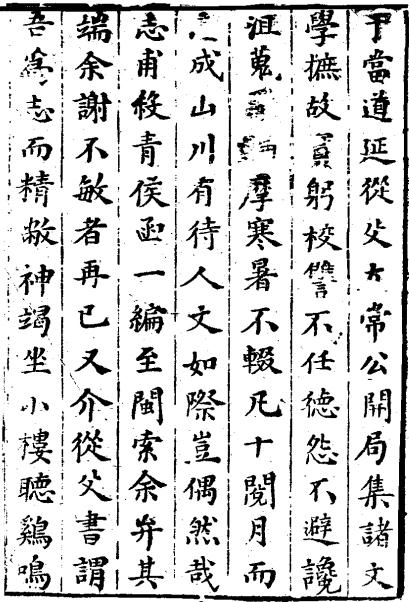 于當道延從父太常公開局集諸文
學摭故實躬校讐不任德怨不避讒
沮蒐摩寒暑不輟凡十閱月而
成山川有待人文如際豈偶然哉
志甫殺青侯函一編至閩索余弁其
端余謝不敏者再已又介從父書謂
吾為志而精敝神竭坐小樓聽鷄鳴